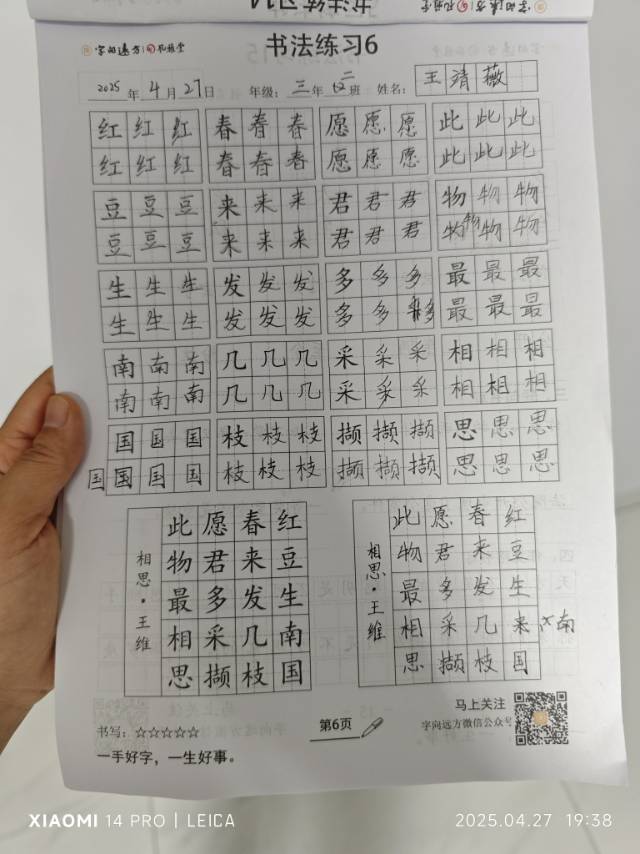 书法练习6
2025年4月27日 年级：三年 班 姓名：王清薇
红红红 春春春 愿愿愿 此此此
红红红 春春春 愿愿愿 此此此
豆豆豆 来来来 君君君 物物物
豆豆豆 来来来 君君君 物物物物
生生生 发发发 多多多 最最最
生生生 发发发 多多多 最最最
南南南 几几几 采采采 相相相
南南南 几几几 采采采 相相相
国国国 枝枝枝 撷撷撷 思思思
国国国国 枝枝枝 撷撷撷 思思思
相思·王维
此愿春红
物君来豆
最多发生
相采几南
思撷枝国
相思·王维
此愿春红
物君来豆
最多发生
相采几来×南
思撷枝国
书写：☆☆☆☆☆
一手好字，一生好事。
第6页
马上关注
字向远方微信公众号
XIAOMI 14 PRO | LEICA
2025.04.27 19:38